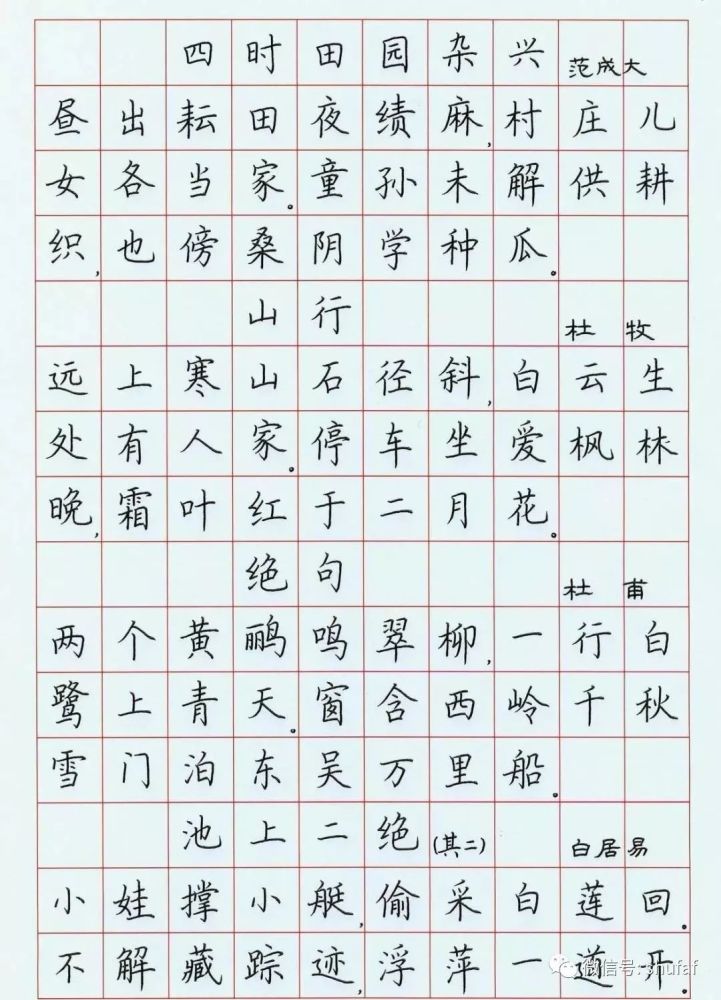 四时田园杂兴 范成大
昼出耘田夜绩麻,村庄儿
女各当家。童孙未解供耕
织,也傍桑阴学种瓜。
山行 杜牧
远上寒山石径斜,白云生
处有人家。停车坐爱枫林
晚,霜叶红于二月花。
绝句 杜甫
两个黄鹂鸣翠柳,一行白
鹭上青天。窗含西岭千秋
雪门泊东吴万里船。
池上二绝(其二) 白居易
小娃撑小艇,偷采白莲回。
不解藏踪迹,浮萍一道开。
微信号: shufaf